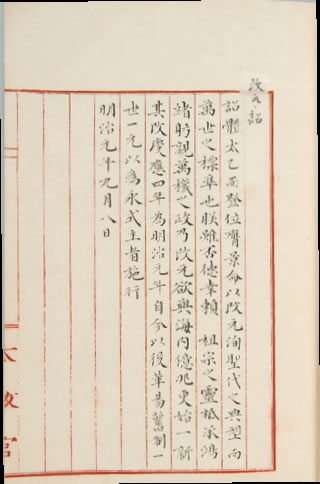 改元ノ詔
詔體太乙而登位膺景命以改元洵聖代之典型而
萬世之標準也朕雖否德幸頼　祖宗之靈祗承鴻
緒躬親萬機之政乃改元欲與海内億兆更始一新
其改慶應四年為明治元年自今以後革易舊制一
世一元以為永式主者施行
明治元年九月八日
太政官